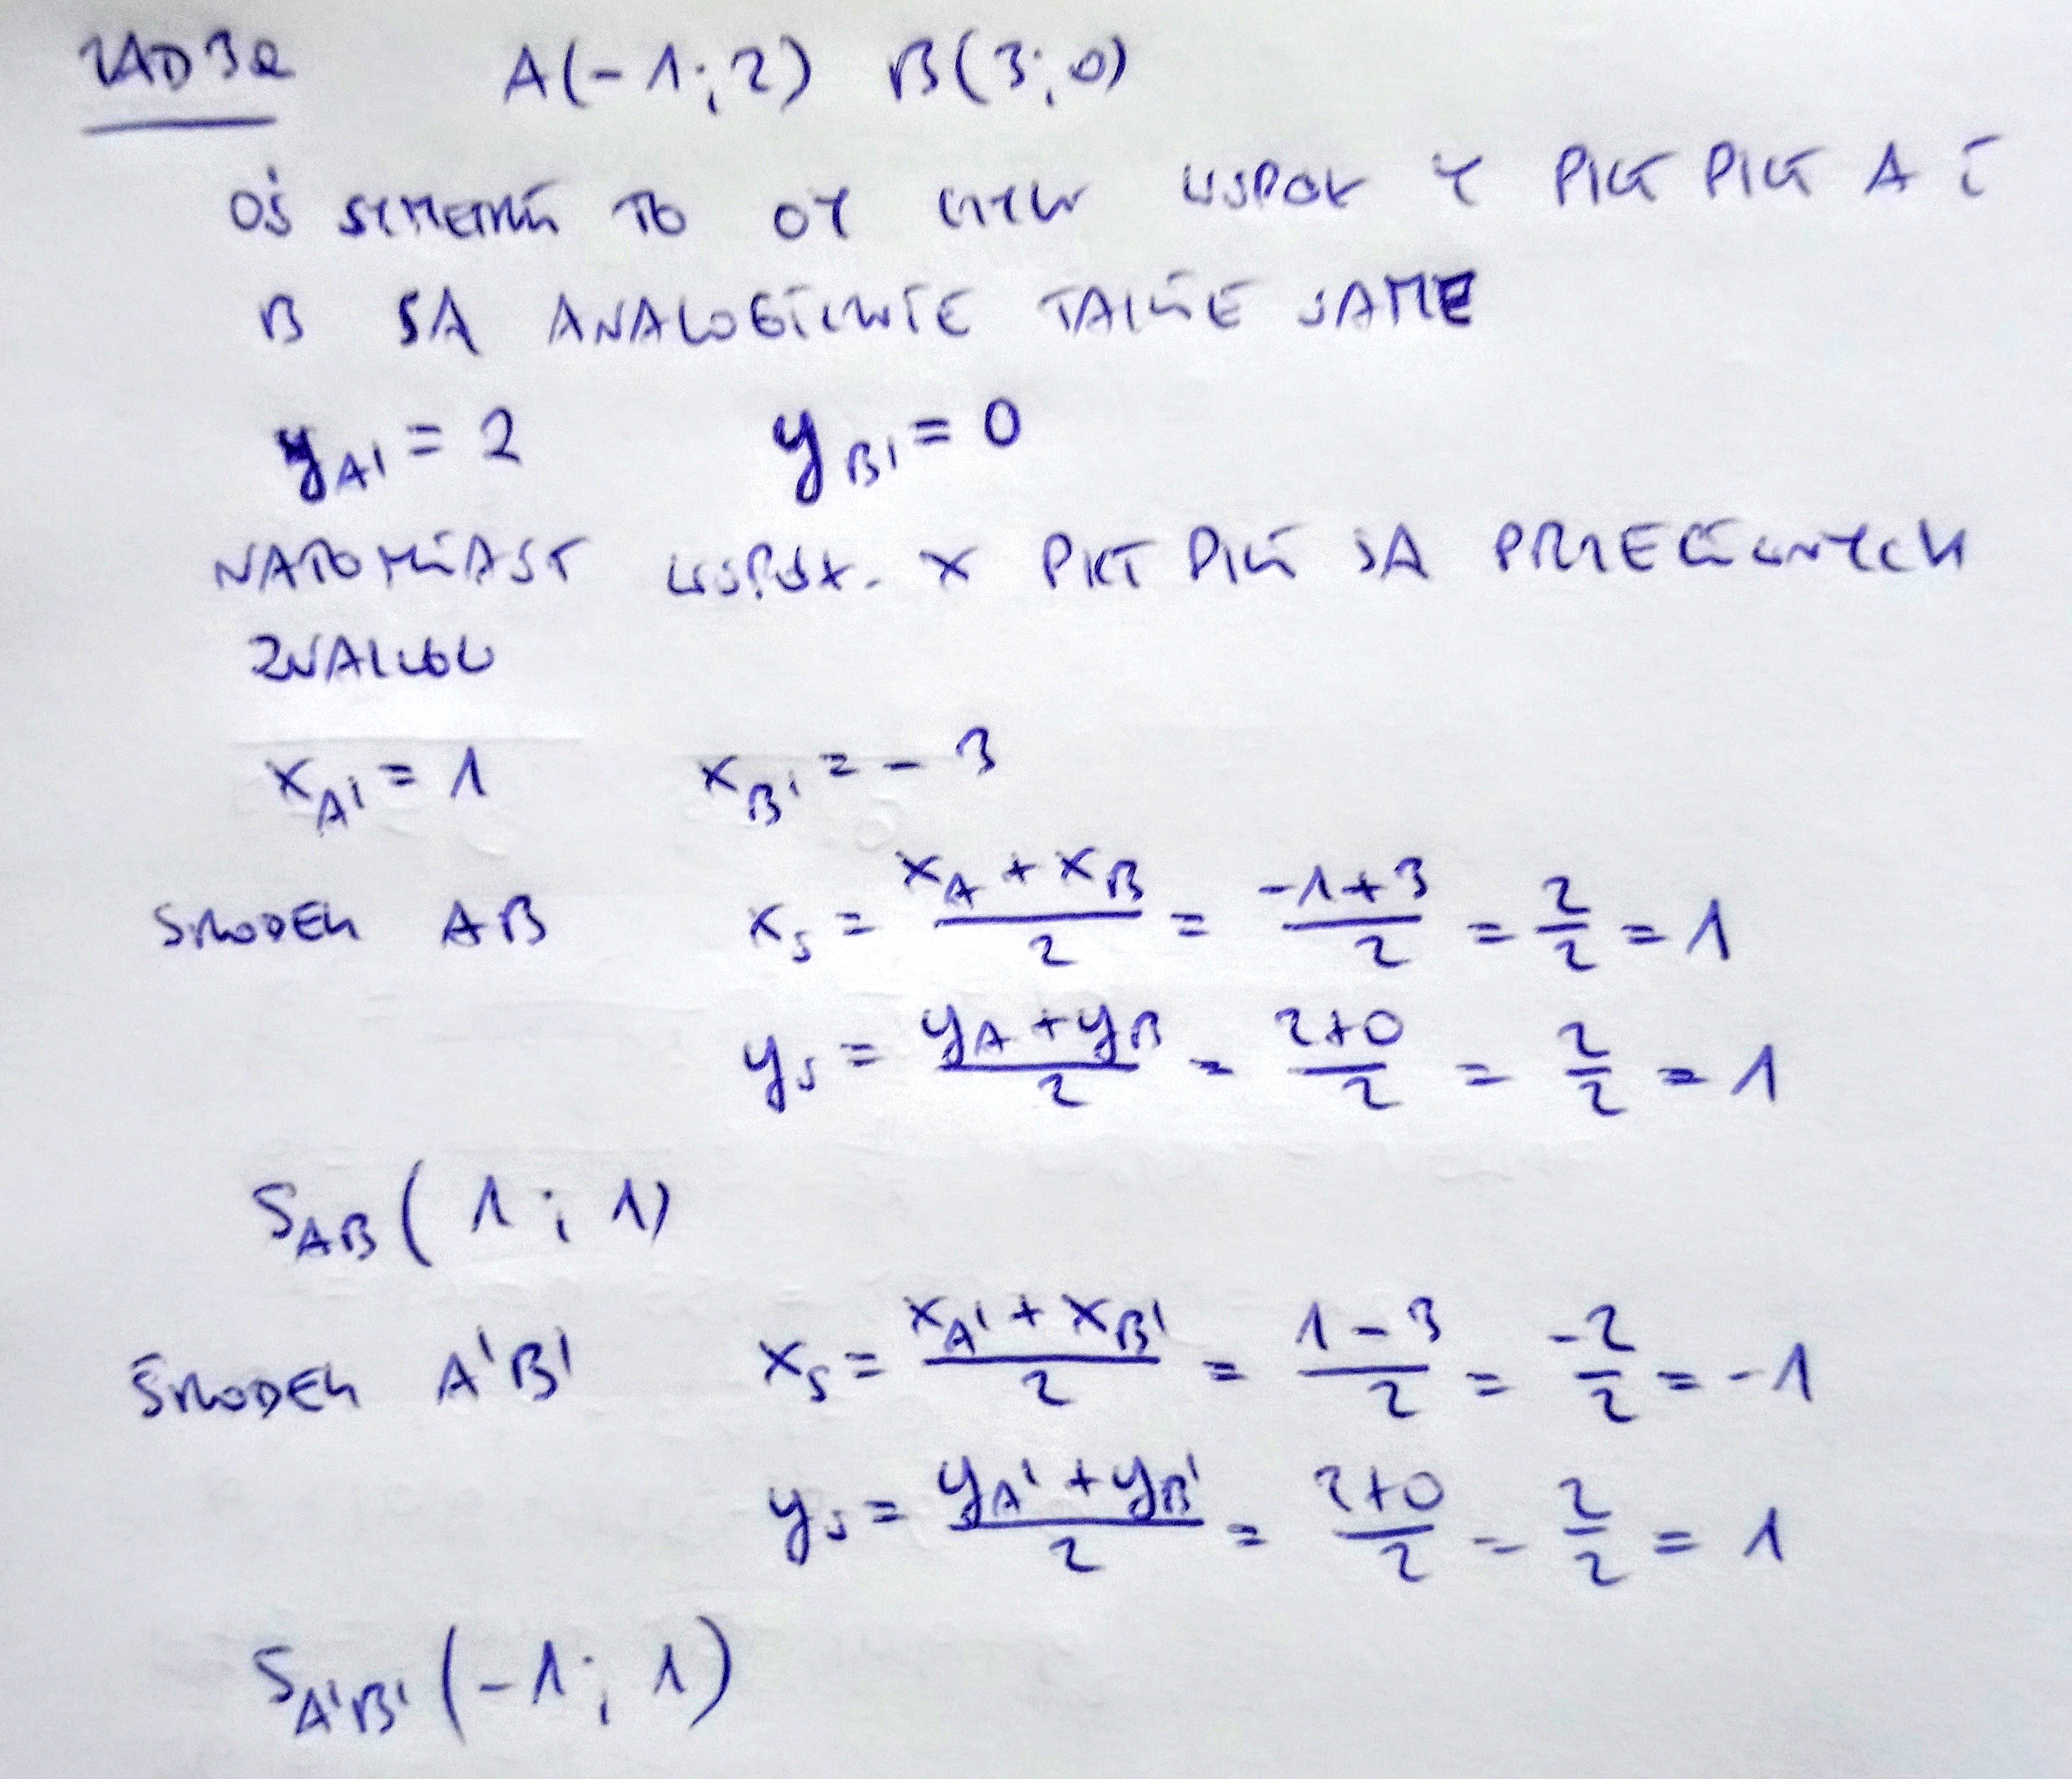 ZAD 3a A(-1;2) B(3;0)
OŚ SYMETRII TO OY CZYLI WSPÓŁ Y PKT PKT A I
B SĄ ANALOGICZNIE TAKIE SAME
y_A' = 2 y_B' = 0
NATOMIAST WSPÓŁ. X PKT PKT SĄ PRZECIWNYCH
ZNAKÓW
x_A' = 1 x_B' = -3
ŚRODEK AB x_S = (x_A + x_B)/2 = (-1+3)/2 = 2/2 = 1
y_S = (y_A + y_B)/2 = (2+0)/2 = 2/2 = 1
S_AB (1;1)
ŚRODEK A'B' x_S = (x_A' + x_B')/2 = (1-3)/2 = -2/2 = -1
y_S = (y_A' + y_B')/2 = (2+0)/2 = 2/2 = 1
S_A'B' (-1;1)